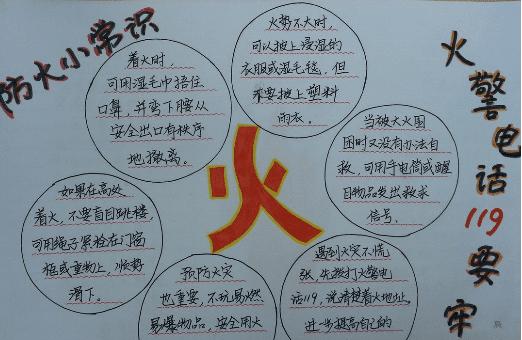 防火小常识
着火时，
可用湿毛巾捂住
口鼻，并弯下腰从
安全出口有秩序
地撤离。
火势不大时，
可以披上浸湿的
衣服或湿毛毯，但
不要披上塑料
雨衣。
当被大火围
困时又没有办法自
救，可用手电筒或醒
目物品发出救求
信号。
如果在高处
着火，不要盲目跳楼，
可用绳子紧栓在门窗
框或重物上，顺势
滑下。
火
预防火灾
也重要，不玩易燃
易爆物品，安全用火
遇到火灾不慌
张，先拨打火警电
话119，说清楚着火地址。
进一步提高自己的
火警电话119要牢